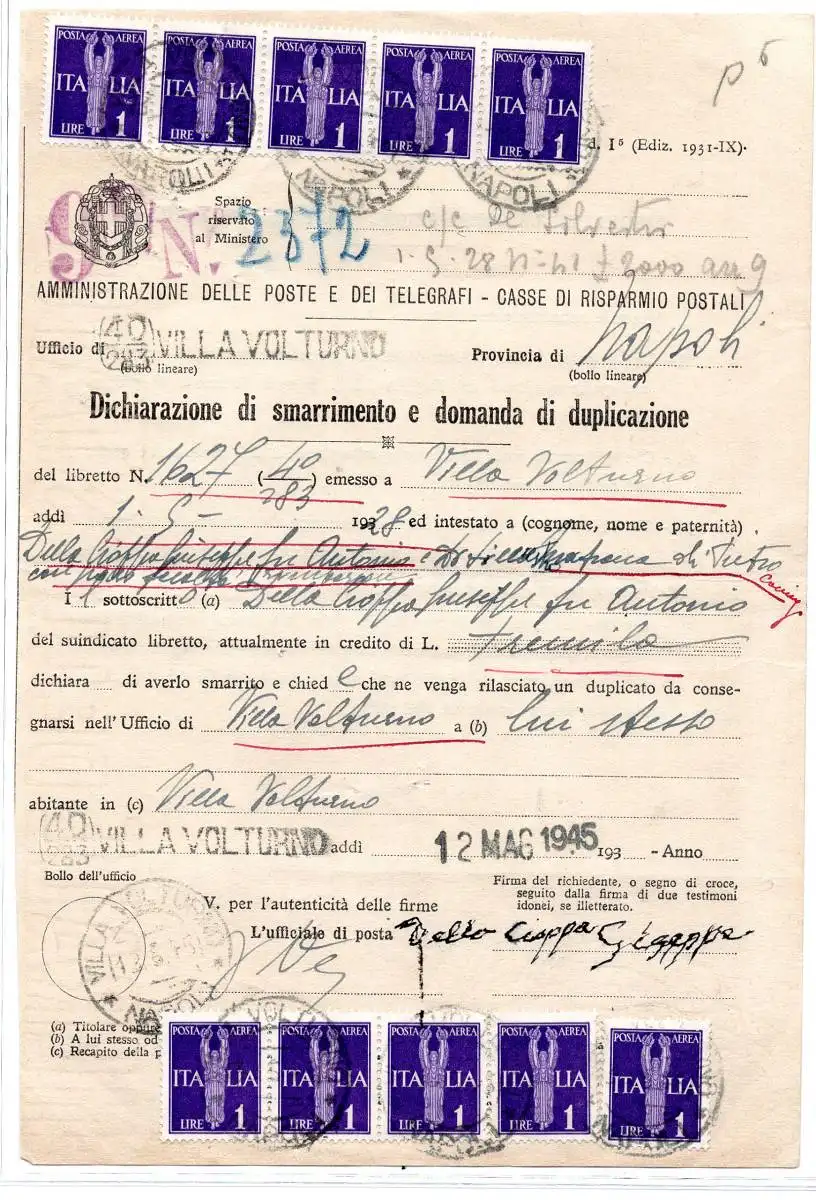 POSTA AEREA ITALIA LIRE 1
POSTA AEREA ITALIA LIRE 1
POSTA AEREA ITALIA LIRE 1
POSTA AEREA ITALIA LIRE 1
POSTA AEREA ITALIA LIRE 1
NAPOLI
NAPOLI
p 6
d. I⁵ (Ediz. 1931-IX).
Spazio
riservato
al Ministero
9 N. 2372
c/c De
1-5-28
AMMINISTRAZIONE DELLE POSTE E DEI TELEGRAFI - CASSE DI RISPARMIO POSTALI
Ufficio di (40/283) VILLA VOLTURNO Provincia di Napoli
(bollo lineare) (bollo lineare)
Dichiarazione di smarrimento e domanda di duplicazione
del libretto N. 1627 (40/283) emesso a Villa Volturno
addì 1-5- 1928 ed intestato a (cognome, nome e paternità)
Della Cioppa Giuseppe fu Antonio e di Pietro
con
I l sottoscritt o (a) Della Cioppa Giuseppe fu Antonio
del suindicato libretto, attualmente in credito di L. Tremila
dichiara di averlo smarrito e chied e che ne venga rilasciato un duplicato da conse-
gnarsi nell'Ufficio di Villa Volturno a (b) lui stesso
abitante in (c) Villa Volturno
(40/283) VILLA VOLTURNO addì 12 MAG 1945 193 - Anno
Bollo dell'ufficio
Firma del richiedente, o segno di croce,
seguito dalla firma di due testimoni
idonei, se illetterato.
V. per l'autenticità delle firme
L'ufficiale di posta Della Cioppa Giuseppe
VILLA VOLTURNO NAPOLI
(a) Titolare oppure
(b) A lui stesso od
(c) Recapito della p
POSTA AEREA ITALIA LIRE 1
POSTA AEREA ITALIA LIRE 1
POSTA AEREA ITALIA LIRE 1
POSTA AEREA ITALIA LIRE 1
POSTA AEREA ITALIA LIRE 1
NAPOLI